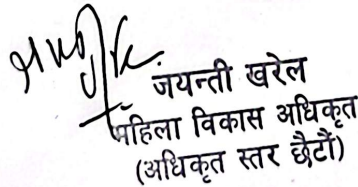 जयन्ती खरेल
महिला विकास अधिकृत
(अधिकृत स्तर छैटौं)